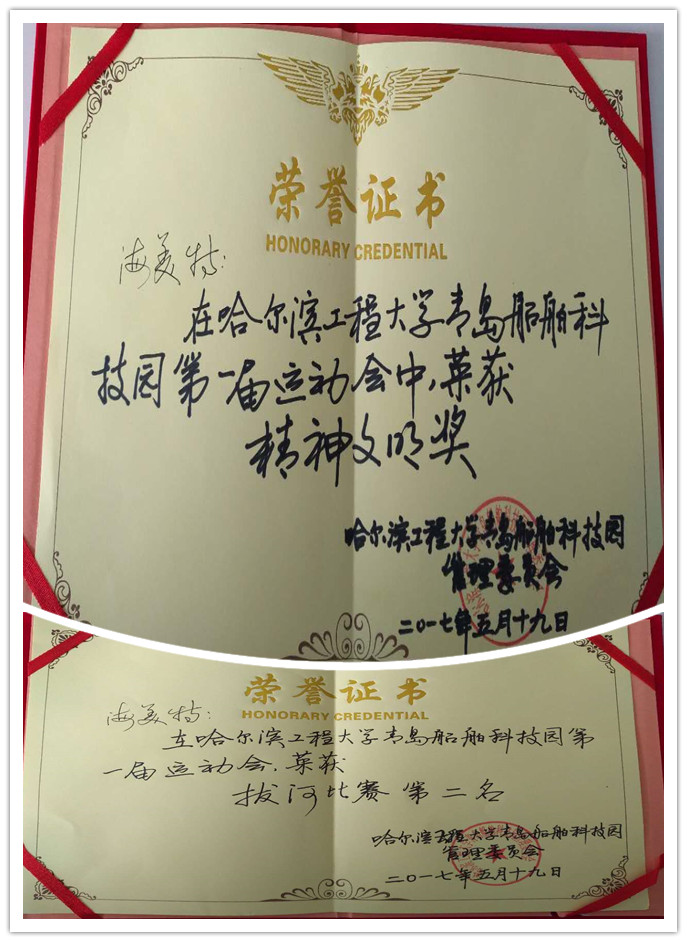 荣誉证书
HONORARY CREDENTIAL
海美特:
在哈尔滨工程大学青岛船舶科
技园第一届运动会中,荣获
精神文明奖
哈尔滨工程大学青岛船舶科技园
管理委员会
二〇一七年五月十九日
荣誉证书
HONORARY CREDENTIAL
海美特:
在哈尔滨工程大学青岛船舶科技园第
一届运动会,荣获
拔河比赛第二名
哈尔滨工程大学青岛船舶科技园
管理委员会
二〇一七年五月十九日